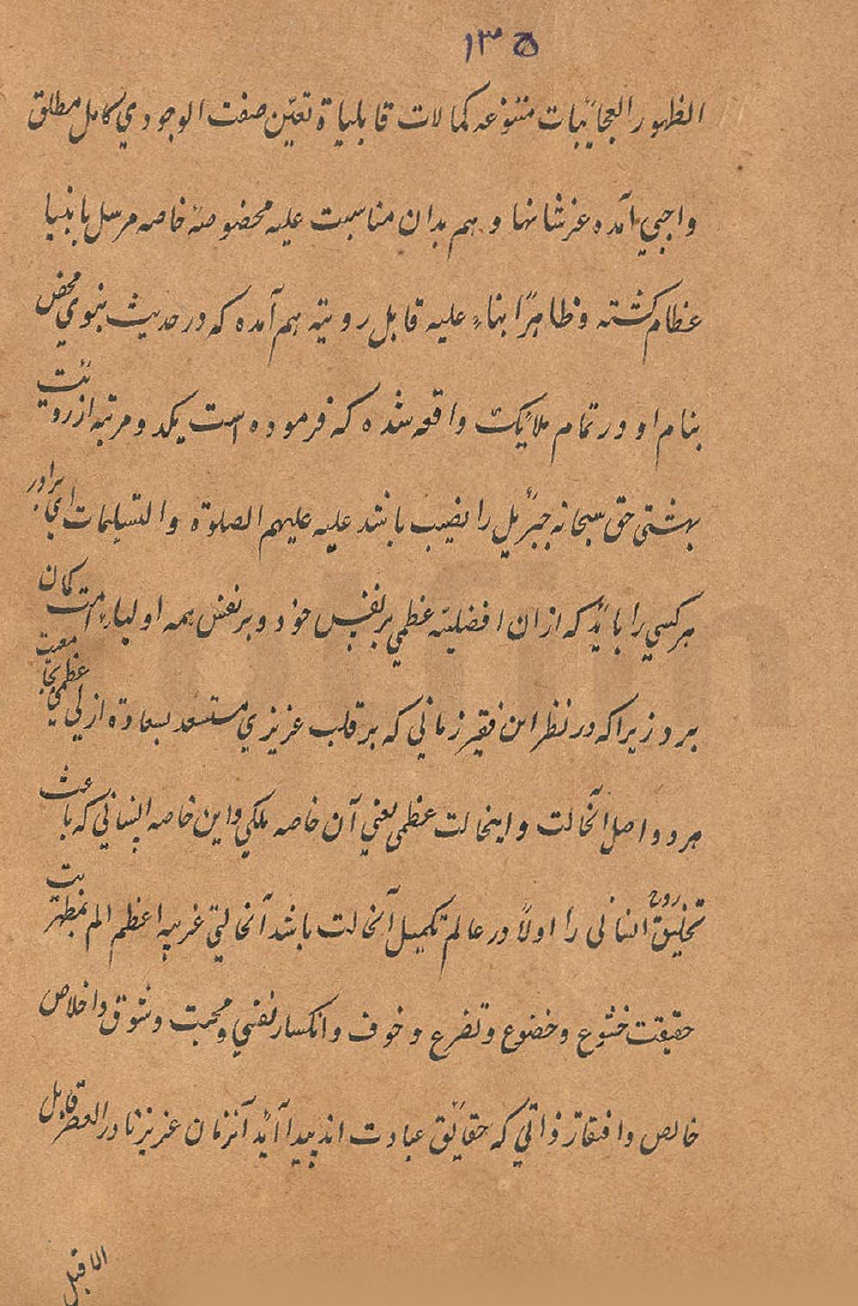 ۱۳۵
الظهور العجائبات متنوعه کمالات قابلیاة تعیّن صفت الوجودي کامل مطلق
واجبي آمده عزشانها و هم بدان مناسبت علیه مخصوصهٔ خاصه مرسل بانبیا
عظام کشته و ظاهرًا بناءٍ علیه قابل رویته هم آمده که در حدیث نبوي محض
بنام او در تمام ملائیک واقعه شده که فرموده است یکد و مرتبه از روئیت
بهشتی حق سبحانه جبرئیل را نصیب باشد علیه علیهم الصلوة والتسلیمات ای برادر
هر کسي را باید که ازان افضلیته عظمي بر نفس خود و بر نفس همه اولیاء امت کمان
برد زیرا که در نظر این فقیر زماني که بر قلب عزیزي مستسعد بسعادة ازلي معیت عظمي بجا
هر دو اصل آنحالت و اینحالت عظمی یعني آن خاصه ملکي و این خاصه انساني که باعث
تخلیق روح انسانی را اولاً در عالم تکمیل آنحالت باشد آنحالتي غریبه اعظم الم بمظهریت
حقیقت خشوع و خضوع و تضرع و خوف و انکسار نفسي و محبت و شوق و اخلاص
خالص و افتقار ذاتي که حقایق عبادت اند پیدا آید آنزمان عزیز نادر العصر قابل